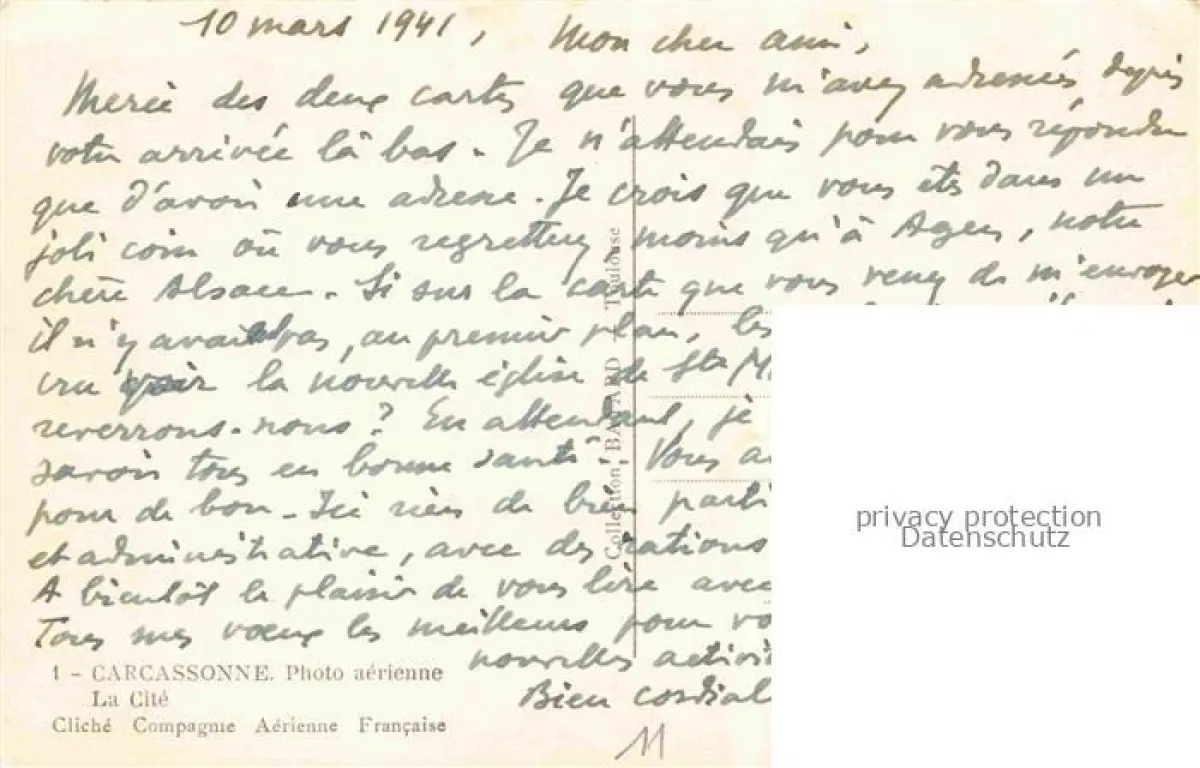 10 mars 1941, Mon cher ami,
Merci des deux cartes que vous m'avez adressées depuis
votre arrivée là bas. Je n'attendais pour vous répondre
que d'avoir une adresse. Je crois que vous êtes dans un
joli coin où vous regrettez moins qu'à Agen, notre
chère Alsace. Si sur la carte que vous venez de m'envoyer
il n'y avait pas, au premier plan, les
cru voir la nouvelle église de Ste M
reverrons-nous? En attendant, je
savoir tous en bonne santé. Vous a
pour de bon. Ici rien de bien parti
et administrative, avec des rations
A bientôt le plaisir de vous lire avec
Tous mes voeux les meilleurs pour vo
nouvelles activi
Bien cordial
1 - CARCASSONNE. Photo aérienne
La Cité
Cliché Compagnie Aérienne Française
11
Collection BAJARD - Toulouse
privacy protection
Datenschutz